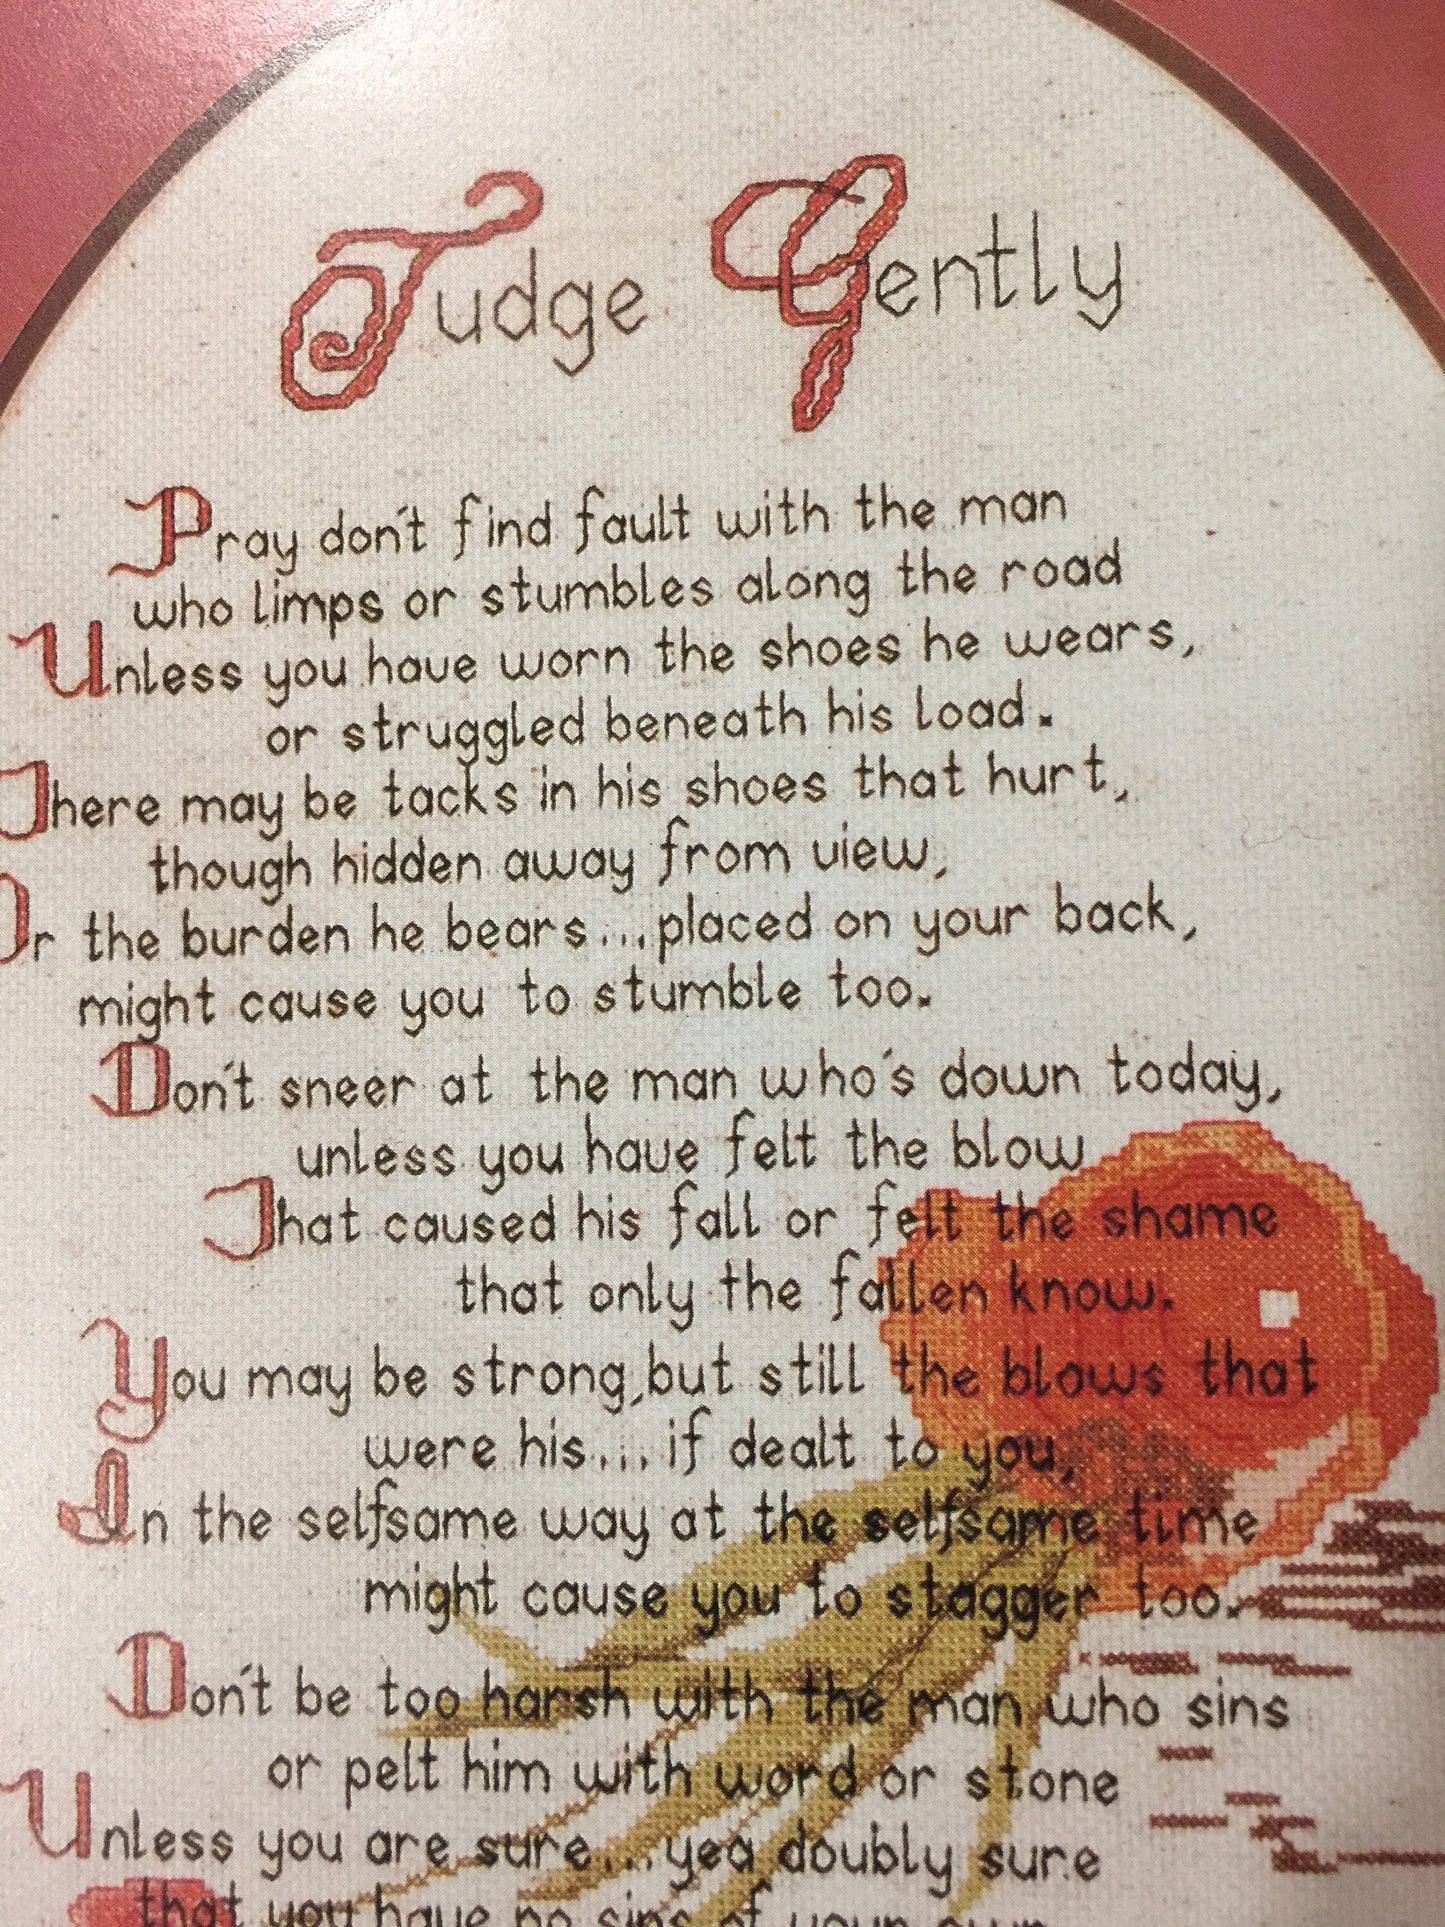 Judge Gently
Pray don't find fault with the man
who limps or stumbles along the road
Unless you have worn the shoes he wears,
or struggled beneath his load.
There may be tacks in his shoes that hurt,
though hidden away from view,
Or the burden he bears...placed on your back,
might cause you to stumble too.
Don't sneer at the man who's down today,
unless you have felt the blow
That caused his fall or felt the shame
that only the fallen know.
You may be strong,but still the blows that
were his...if dealt to you,
In the selfsame way at the selfsame time
might cause you to stagger too.
Don't be too harsh with the man who sins
or pelt him with word or stone
Unless you are sure...yea doubly sure
that you have no sins of your own